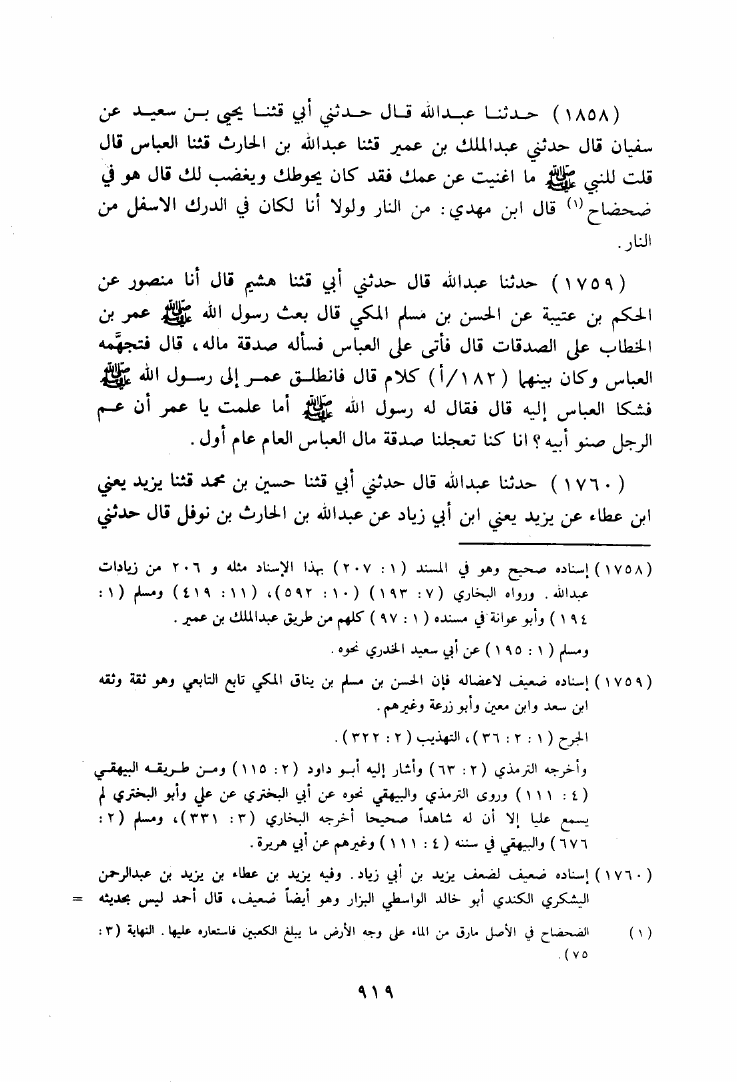 (١٨٥٨) حدثنا عبدالله قال حدثني أبي قثنا يحيى بن سعيد عن
سفيان قال حدثني عبدالملك بن عمير قثنا عبدالله بن الحارث قثنا العباس قال
قلت للنبي ﷺ ما اغنيت عن عمك فقد كان يحوطك ويغضب لك قال هو في
ضحضاح(١) قال ابن مهدي: من النار ولولا أنا لكان في الدرك الاسفل من
النار.
(١٧٥٩) حدثنا عبدالله قال حدثني أبي قثنا هشيم قال أنا منصور عن
الحكم بن عتيبة عن الحسن بن مسلم المكي قال بعث رسول الله ﷺ عمر بن
الخطاب على الصدقات قال فأتى على العباس فسأله صدقة ماله، قال فتجهَّمه
العباس وكان بينهما (١٨٢/أ) كلام قال فانطلق عمر إلى رسول الله ﷺ
فشكا العباس إليه قال فقال له رسول الله ﷺ أما علمت يا عمر أن عم
الرجل صنو أبيه؟ انا كنا تعجلنا صدقة مال العباس العام عام أول.
(١٧٦٠) حدثنا عبدالله قال حدثني أبي قثنا حسين بن محمد قثنا يزيد يعني
ابن عطاء عن يزيد يعني ابن أبي زياد عن عبدالله بن الحارث بن نوفل قال حدثني
(١٧٥٨) إسناده صحيح وهو في المسند (١: ٢٠٧) بهذا الإسناد مثله و ٢٠٦ من زيادات
عبدالله. ورواه البخاري (٧: ١٩٣) (١٠: ٥٩٢)، (١١: ٤١٩) ومسلم (١:
١٩٤) وأبو عوانة في مسنده (١: ٩٧) كلهم من طريق عبدالملك بن عمير.
ومسلم (١: ١٩٥) عن أبي سعيد الخدري نحوه.
(١٧٥٩) إسناده ضعيف لاعضاله فإن الحسن بن مسلم بن يناق المكي تابع التابعي وهو ثقة وثقه
ابن سعد وابن معين وأبو زرعة وغيرهم.
الجرح (١: ٢: ٣٦)، التهذيب (٢: ٣٢٢).
وأخرجه الترمذي (٢: ٦٣) وأشار إليه أبو داود (٢: ١١٥) ومن طريقه البيهقي
(٤: ١١١) وروى الترمذي والبيهقي نحوه عن أبي البختري عن علي وأبو البختري لم
يسمع عليا إلا أن له شاهداً صحيحا أخرجه البخاري (٣: ٣٣١)، ومسلم (٢:
٦٧٦) والبيهقي في سننه (٤: ١١١) وغيرهم عن أبي هريرة.
(١٧٦٠) إسناده ضعيف لضعف يزيد بن أبي زياد. وفيه يزيد بن عطاء بن يزيد بن عبدالرحمن
اليشكري الكندي أبو خالد الواسطي البزار وهو أيضاً ضعيف، قال أحمد ليس بحديثه =
(١) الضحضاح في الأصل مارق من الماء على وجه الأرض ما يبلغ الكعبين فاستعاره عليها. النهاية (٣:
٧٥).
٩١٩